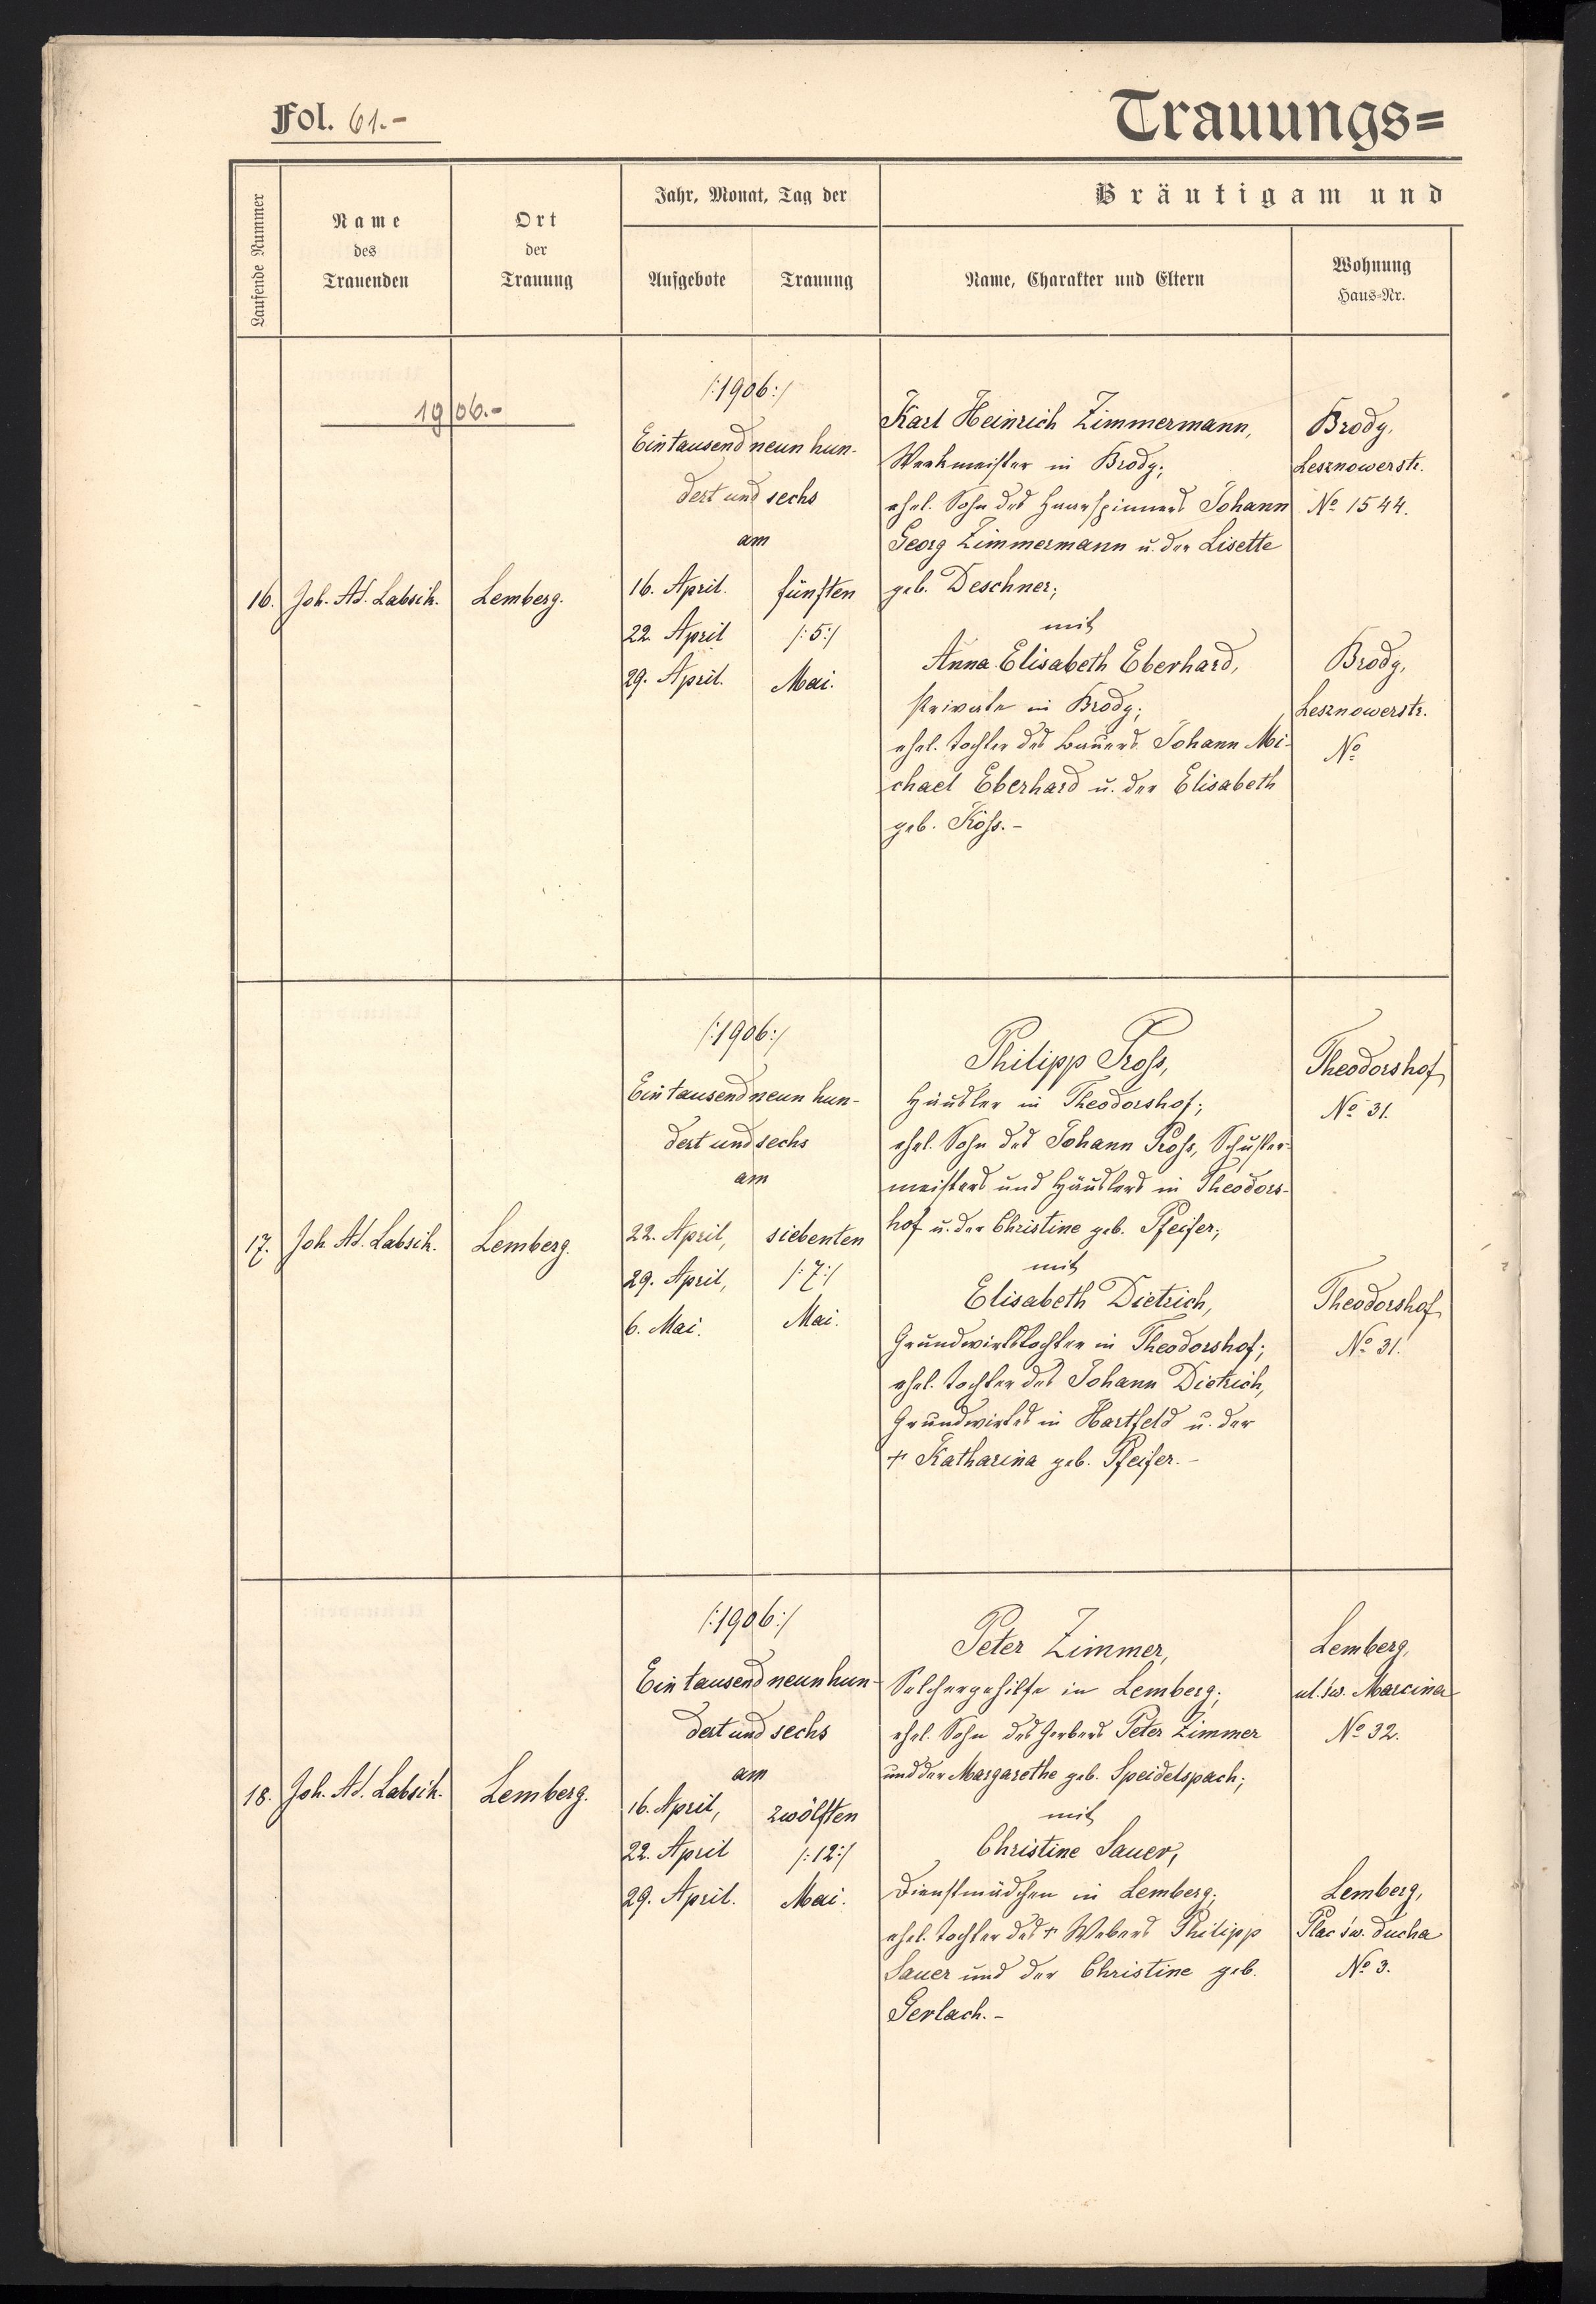 Fol. 61.-
Trauungs=
Laufende Nummer
Name
des
Trauenden
Ort
der
Trauung
Jahr, Monat, Tag der
Aufgebote
Trauung
Bräutigam und
Name, Charakter und Eltern
Wohnung
Haus-Nr.
1906.-
16.
Joh. Ad. Labsik.
Lemberg.
/:1906:/
Eintausend neun hun-
dert und sechs
am
16. April.
22. April
29. April.
fünften
/:5:/
Mai.
Karl Heinrich Zimmermann,
Werkmeister in Brody;
ehel. Sohn des Haarspinners Johann
Georg Zimmermann u. der Lisette
geb. Deschner;
mit
Anna Elisabeth Eberhard,
Private in Brody;
ehel. Tochter des Bauers Johann Mi-
chael Eberhard u. der Elisabeth
geb. Köss.-
Brody,
Lesznowerstr.
No 1544.
Brody,
Lesznowerstr.
No
17.
Joh. Ad. Labsik.
Lemberg.
/:1906:/
Ein tausend neun hun-
dert und sechs
am
22. April,
29. April,
6. Mai.
siebenten
/:7:/
Mai.
Philipp Pross,
Häusler in Theodorshof;
ehel. Sohn des Johann Pross, Schuster-
meisters und Häuslers in Theodors-
hof u. der Christine geb. Pfeifer;
mit
Elisabeth Dietrich,
Grundwirtstochter in Theodorshof;
ehel. Tochter des Johann Dietrich,
Grundwirtes in Hartfeld u. der
+ Katharina geb. Pfeifer.-
Theodorshof
No 31.
Theodorshof
No 31.
18.
Joh. Ad. Labsik.
Lemberg.
/:1906:/
Ein tausend neun hun-
dert und sechs
am
16. April,
22. April
29. April.
zwölften
/:12:/
Mai.
Peter Zimmer,
Selchergehilfe in Lemberg;
ehel. Sohn des Gerbers Peter Zimmer
und der Margarethe geb. Speidelspach;
mit
Christine Sauer,
Dienstmädchen in Lemberg;
ehel. Tochter des + Webers Philipp
Sauer und der Christine geb.
Gerlach.-
Lemberg,
ul. św. Marcina
No 32.
Lemberg,
Plac św. Ducha
No 3.